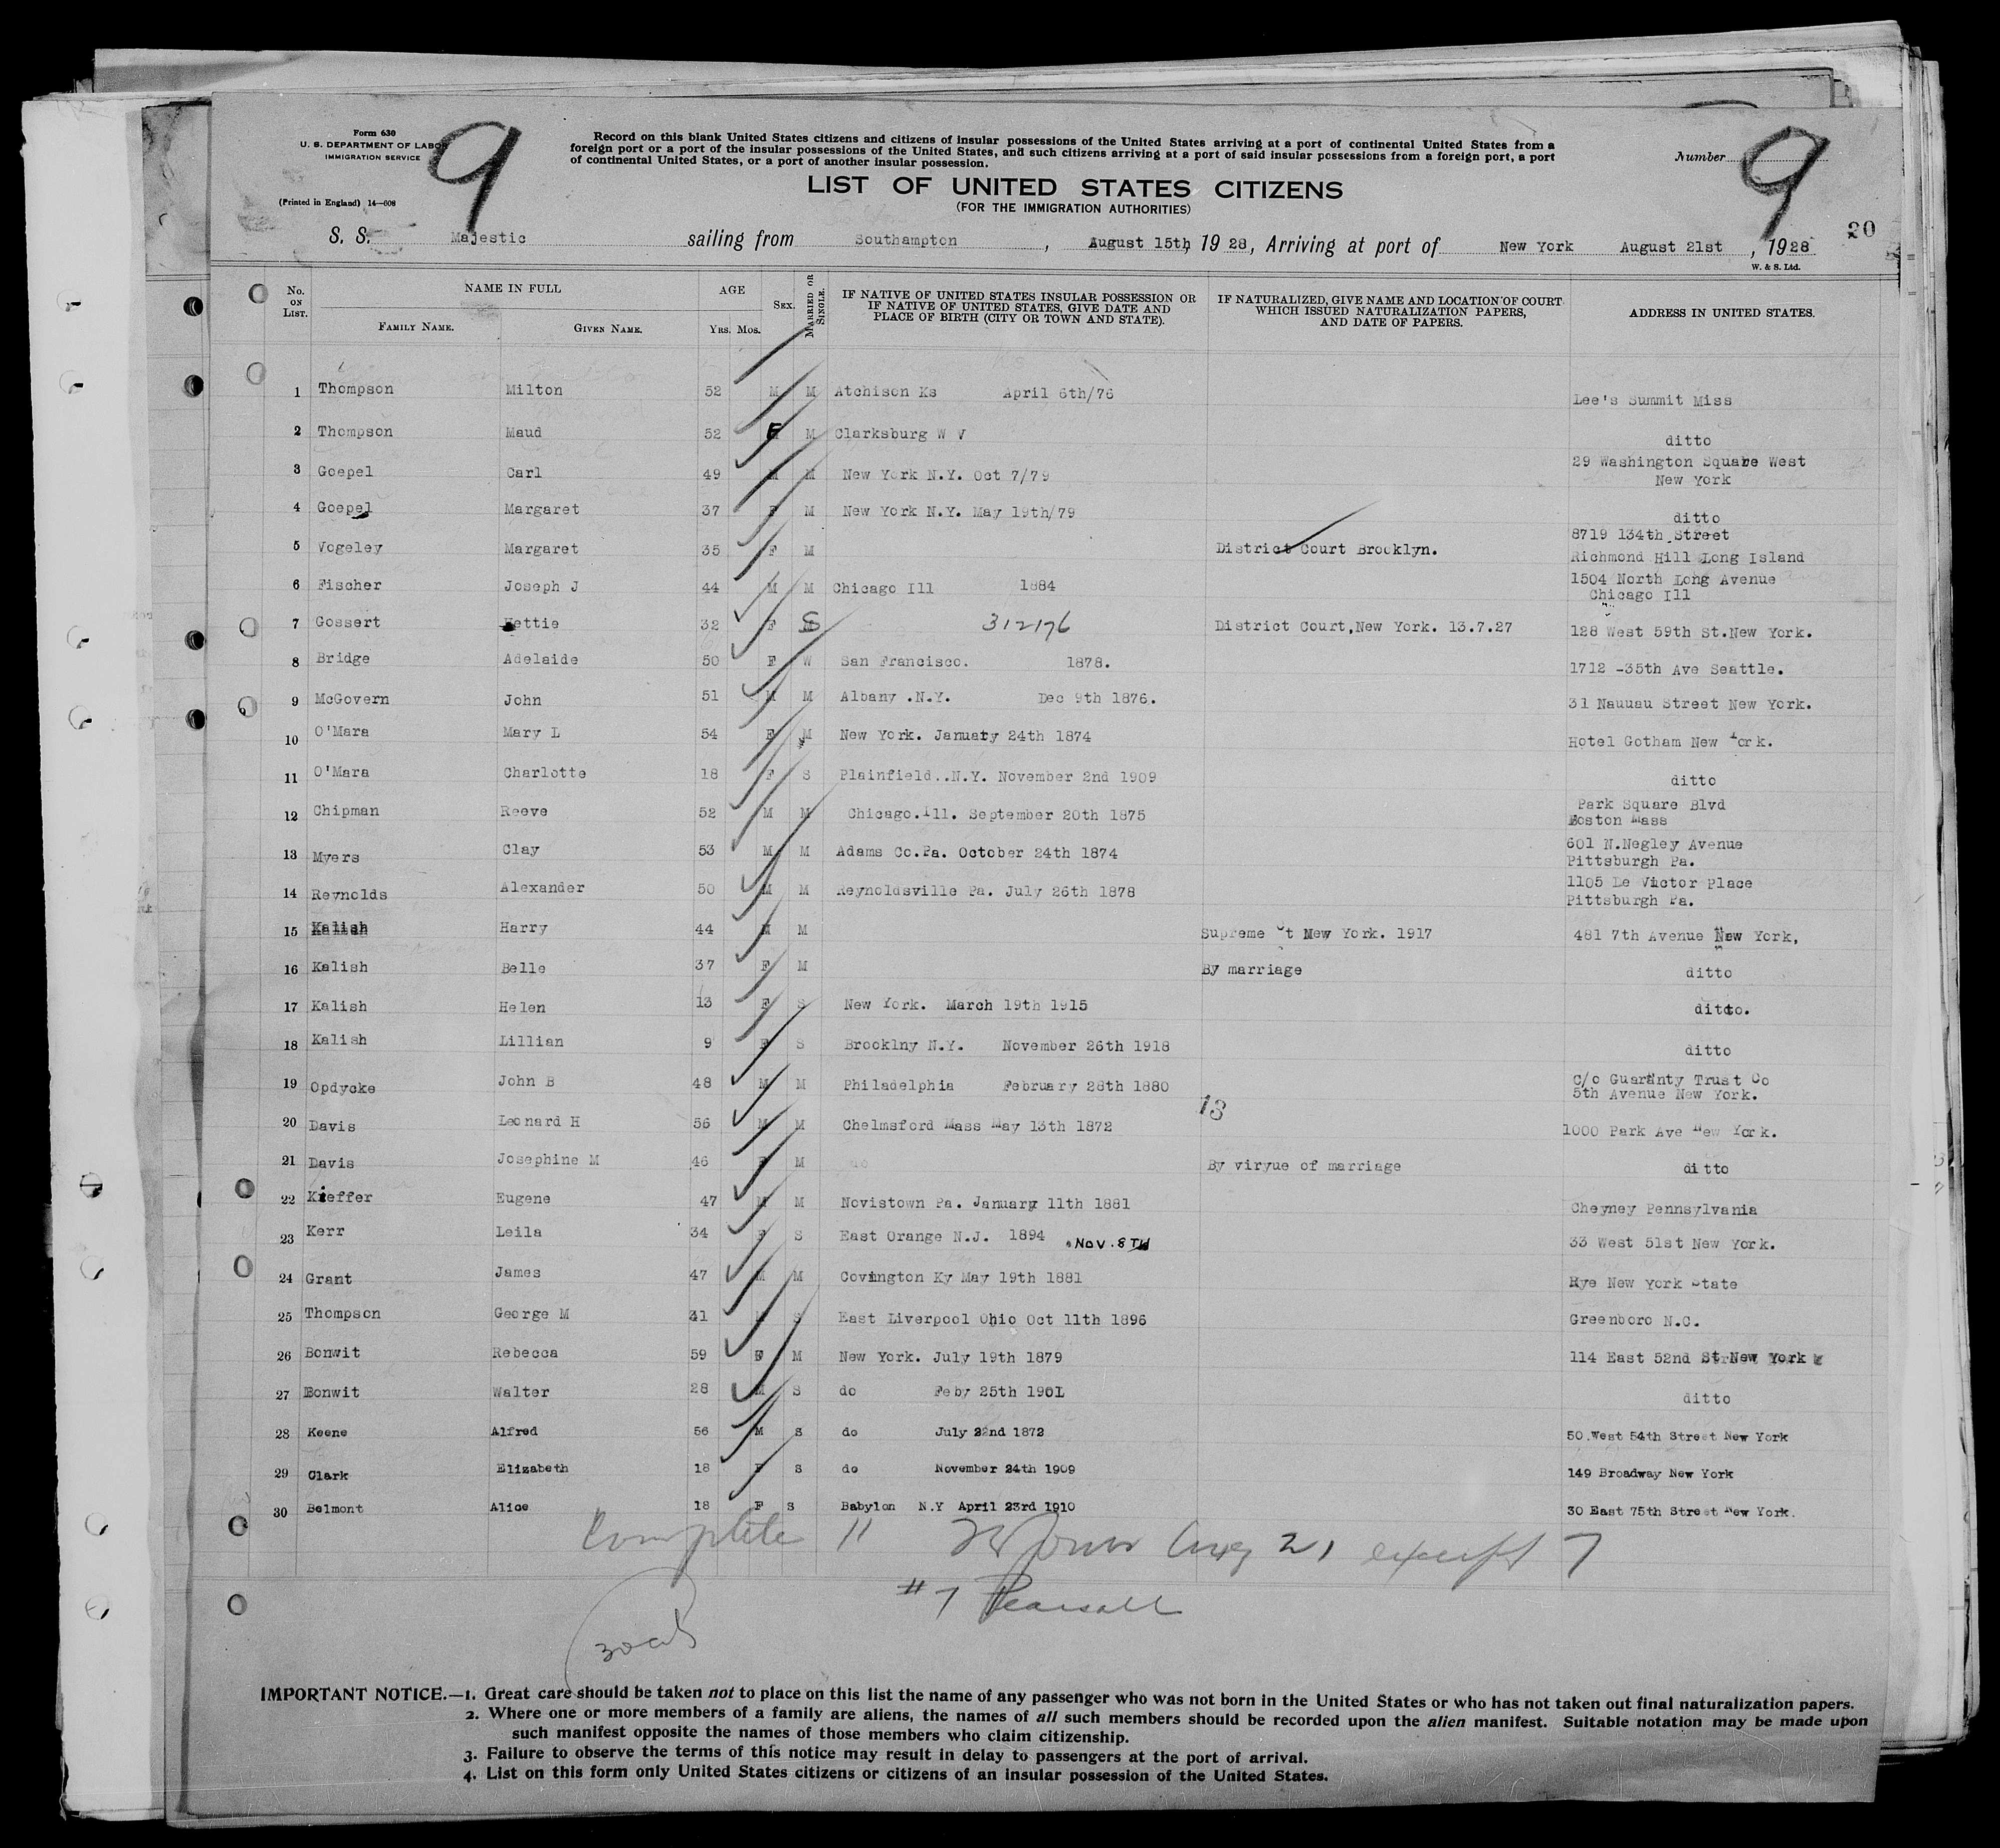 Form 630
U. S. DEPARTMENT OF LABOR
IMMIGRATION SERVICE
(Printed in England) 14—608
9
Record on this blank United States citizens and citizens of insular possessions of the United States arriving at a port of continental United States from a
foreign port or a port of the insular possessions of the United States, and such citizens arriving at a port of said insular possessions from a foreign port, a port
of continental United States, or a port of another insular possession.
Number 9
LIST OF UNITED STATES CITIZENS
(FOR THE IMMIGRATION AUTHORITIES)
20
S. S. Majestic sailing from Southampton , August 15th, 1928, Arriving at port of New York August 21st , 1928
W. & S. Ltd.
No. ON LIST. NAME IN FULL FAMILY NAME. GIVEN NAME. AGE YRS. MOS. SEX. MARRIED OR SINGLE. IF NATIVE OF UNITED STATES INSULAR POSSESSION OR IF NATIVE OF UNITED STATES, GIVE DATE AND PLACE OF BIRTH (CITY OR TOWN AND STATE). IF NATURALIZED, GIVE NAME AND LOCATION OF COURT WHICH ISSUED NATURALIZATION PAPERS, AND DATE OF PAPERS. ADDRESS IN UNITED STATES.
1 Thompson Milton 52 M M Atchison Ks April 6th/76 Lee's Summit Miss
2 Thompson Maud 52 F M Clarksburg W V ditto
3 Goepel Carl 49 M M New York N.Y. Oct 7/79 29 Washington Square West New York
4 Goepel Margaret 37 F M New York N.Y. May 19th/79 ditto
5 Vogeley Margaret 35 F M District Court Brooklyn. 8719 134th Street Richmond Hill Long Island
6 Fischer Joseph J 44 M M Chicago Ill 1884 1504 North Long Avenue Chicago Ill
7 Gossert Hettie 32 F S 312176 District Court,New York. 13.7.27 128 West 59th St.New York.
8 Bridge Adelaide 50 F W San Francisco. 1878. 1712 -35th Ave Seattle.
9 McGovern John 51 M M Albany .N.Y. Dec 9th 1876. 31 Nauuau Street New York.
10 O'Mara Mary L 54 F M New York. January 24th 1874 Hotel Gotham New York.
11 O'Mara Charlotte 18 F S Plainfield..N.Y. November 2nd 1909 ditto
12 Chipman Reeve 52 M M Chicago.Ill. September 20th 1875 Park Square Blvd Boston Mass
13 Myers Clay 53 M M Adams Co.Pa. October 24th 1874 601 N.Negley Avenue Pittsburgh Pa.
14 Reynolds Alexander 50 M M Reynoldsville Pa. July 26th 1878 1105 De Victor Place Pittsburgh Pa.
15 Kalish Harry 44 M M Supreme Ct New York. 1917 481 7th Avenue New York,
16 Kalish Belle 37 F M By marriage ditto
17 Kalish Helen 13 F S New York. March 19th 1915 ditto.
18 Kalish Lillian 9 F S Brooklny N.Y. November 26th 1918 ditto
19 Opdycke John B 48 M M Philadelphia February 28th 1880 c/o Guaranty Trust Co 5th Avenue New York.
13
20 Davis Leonard H 56 M M Chelmsford Mass May 13th 1872 1000 Park Ave New York.
21 Davis Josephine M 46 F M do By viryue of marriage ditto
22 Kieffer Eugene 47 M M Novistown Pa. January 11th 1881 Cheyney Pennsylvania
23 Kerr Leila 34 F S East Orange N.J. 1894 NOV. 8TH 33 West 51st New York.
24 Grant James 47 M M Covington Ky May 19th 1881 Rye New York State
25 Thompson George M 31 M S East Liverpool Ohio Oct 11th 1896 Greenboro N.C.
26 Bonwit Rebecca 59 F M New York. July 19th 1879 114 East 52nd St New York
27 Bonwit Walter 28 M S do Feby 25th 1901 ditto
28 Keene Alfred 56 M S do July 22nd 1872 50.West 54th Street New York
29 Clark Elizabeth 18 F S do November 24th 1909 149 Broadway New York
30 Belmont Alice 18 F S Babylon N.Y April 23rd 1910 30 East 75th Street New York.
Complete 11 Aug 21 except 7
#7 Pearsall
IMPORTANT NOTICE.—1. Great care should be taken not to place on this list the name of any passenger who was not born in the United States or who has not taken out final naturalization papers.
2. Where one or more members of a family are aliens, the names of all such members should be recorded upon the alien manifest. Suitable notation may be made upon
such manifest opposite the names of those members who claim citizenship.
3. Failure to observe the terms of this notice may result in delay to passengers at the port of arrival.
4. List on this form only United States citizens or citizens of an insular possession of the United States.